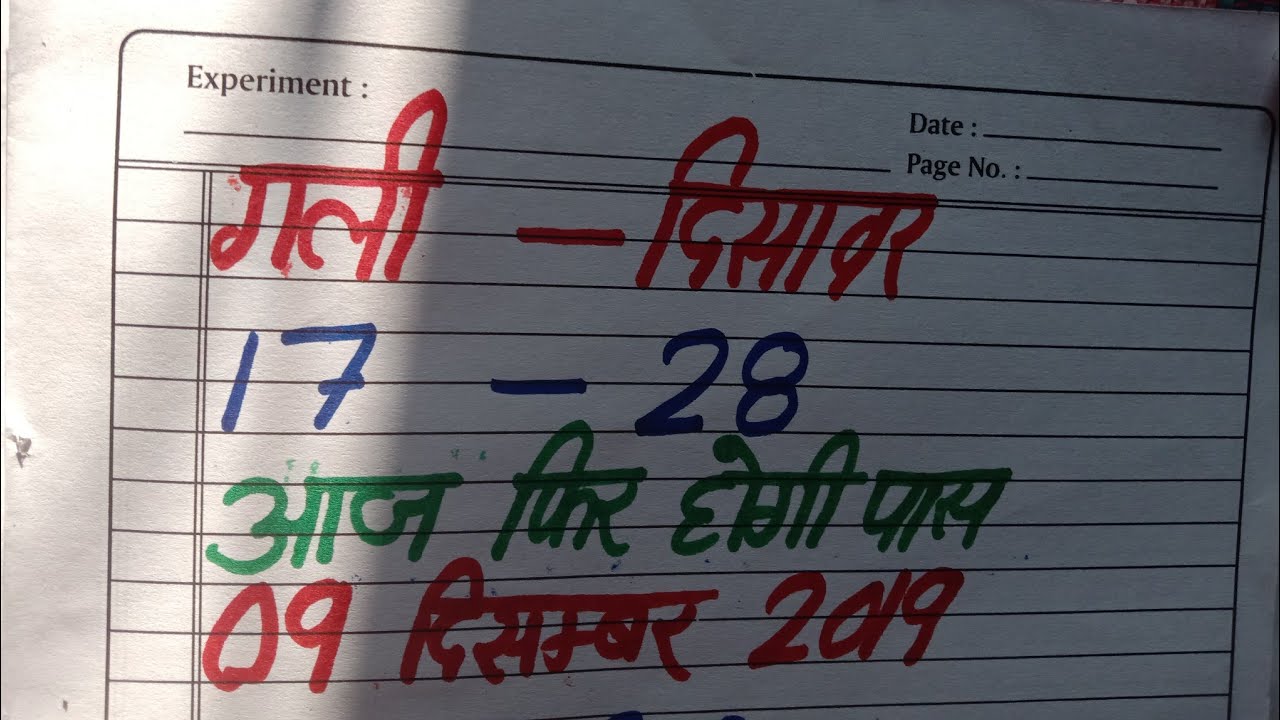 Experiment :
Date :
Page No. :
गली – दिसावर
17 – 28
आज फिर होगी पास
09 दिसम्बर 2019